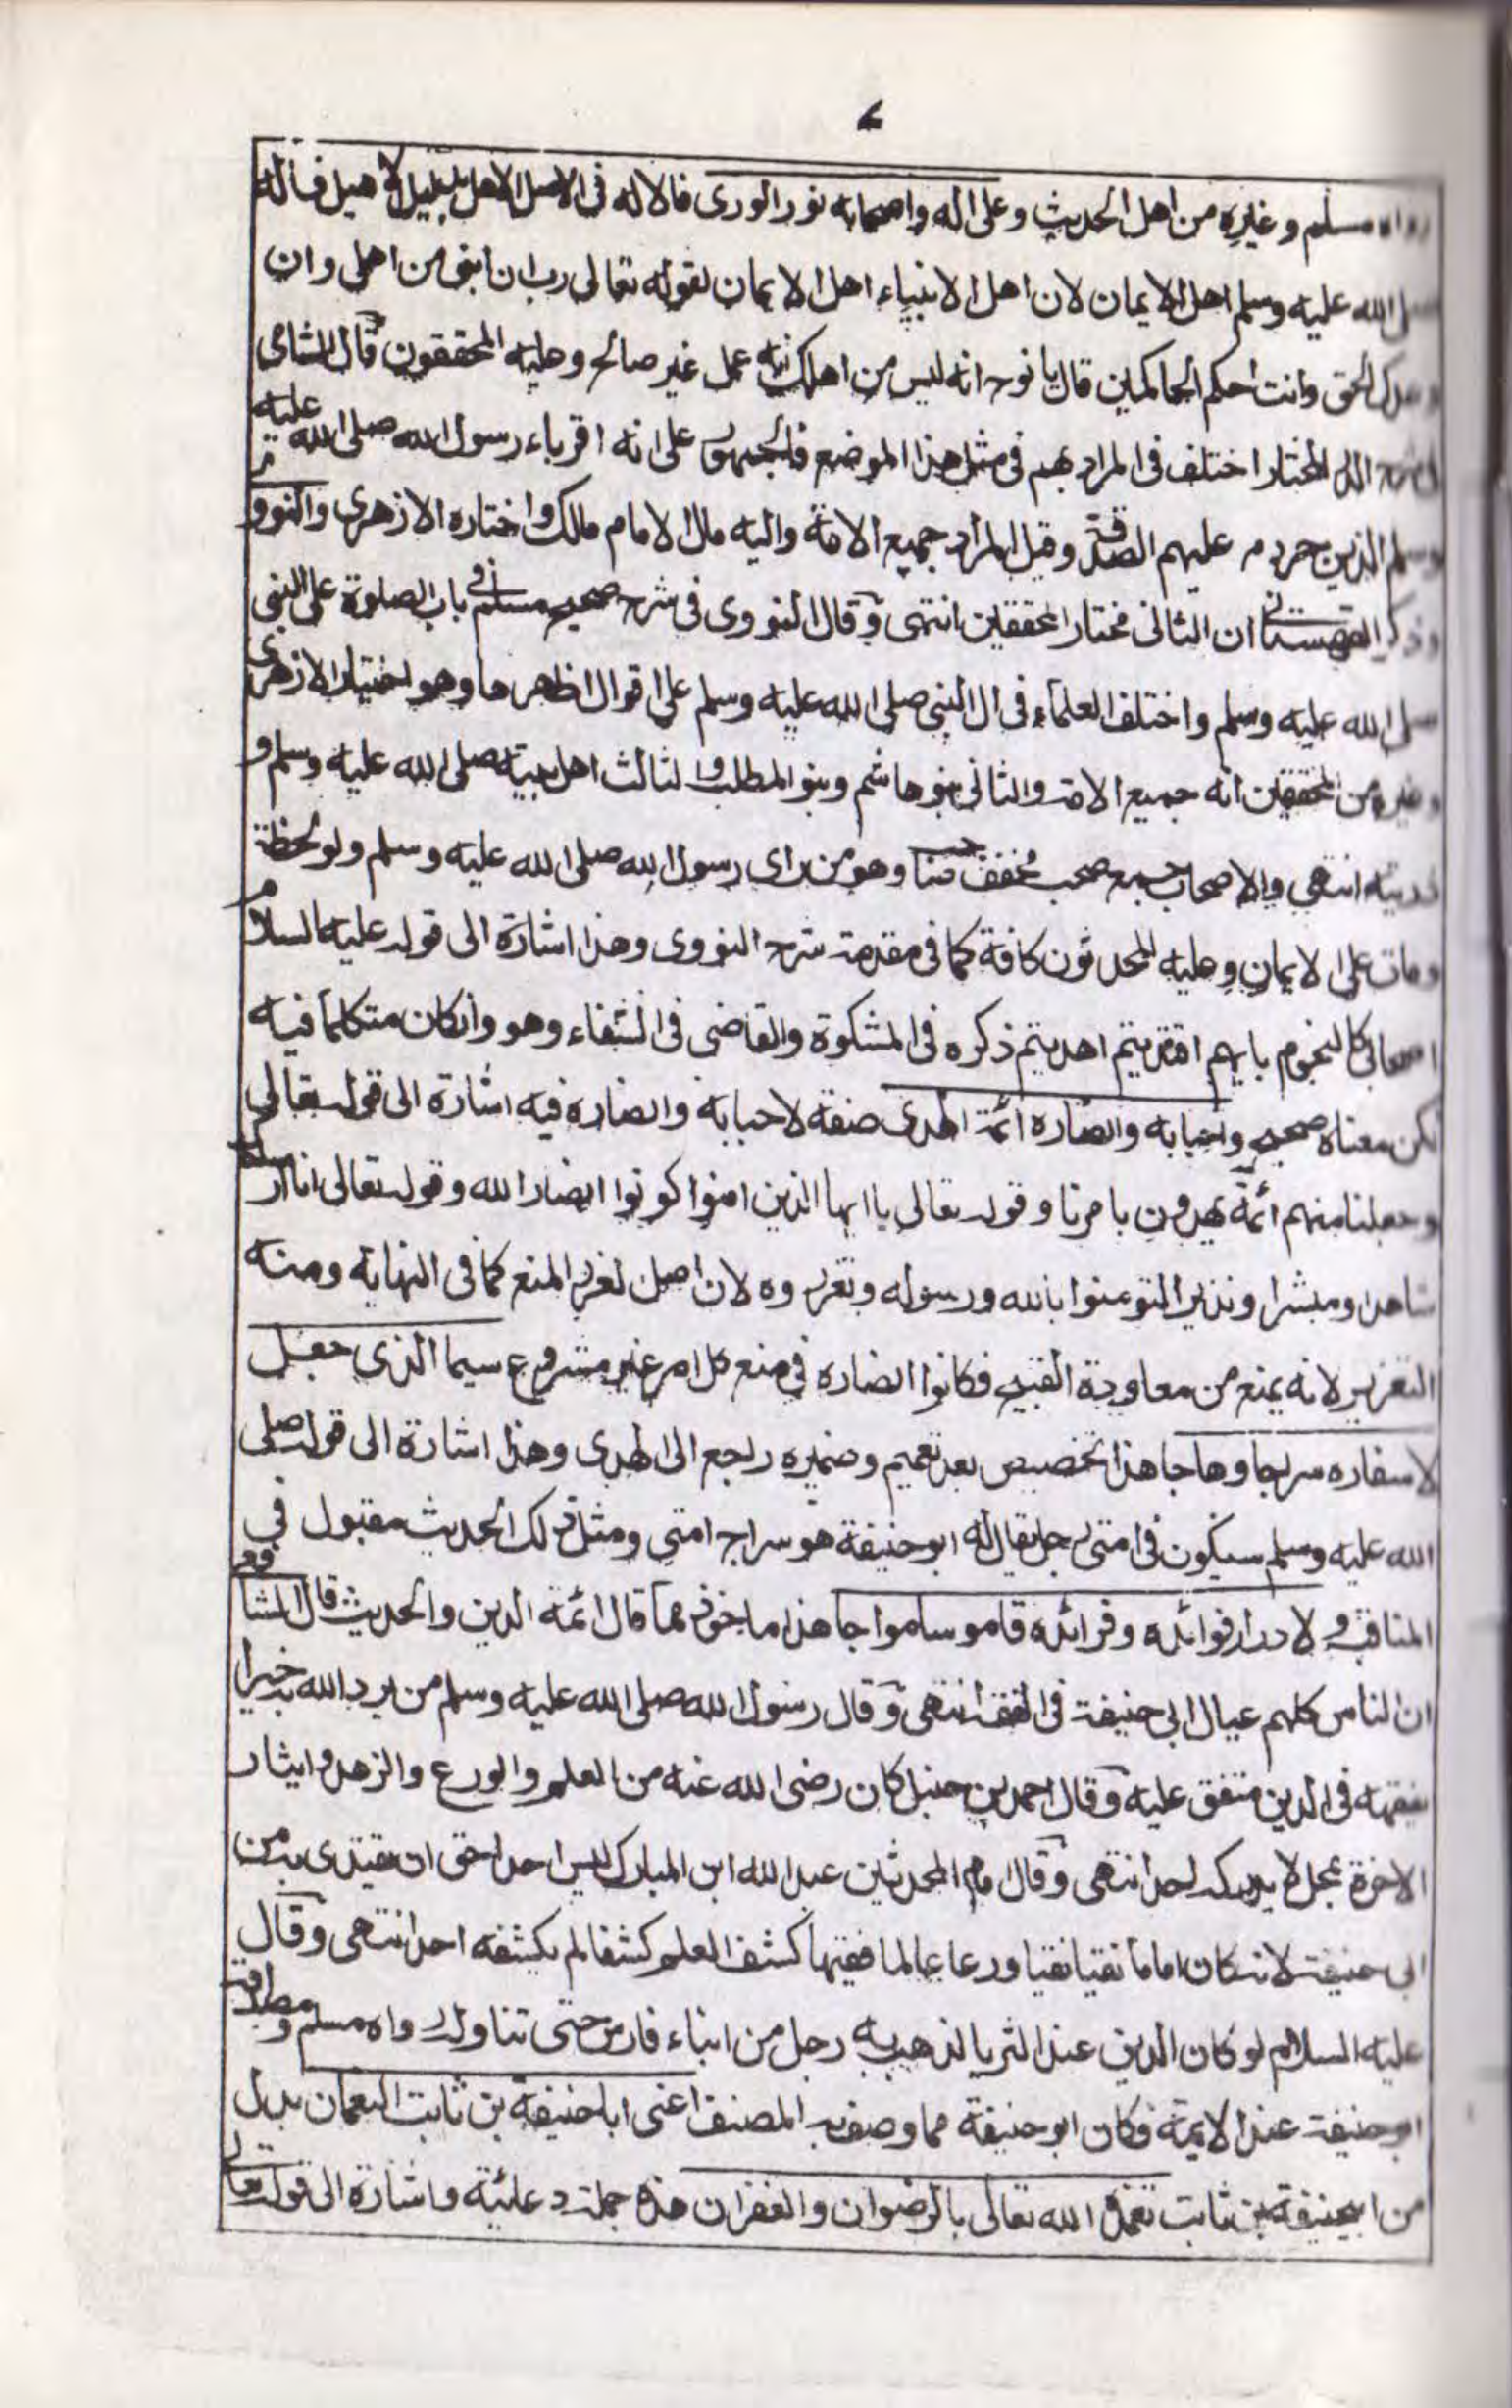 رواه مسلم وغيره من اهل الحديث وعلى اله واصحابه نور الورى فالاله فى الاصل الاهل بدليل الاهيل فاله
صلى الله عليه وسلم اهل الايمان لان اهل الانبياء اهل الايمان لقوله تعالى رب ان ابنى من اهلى وان
وعدك الحق وانت احكم الحاكمين قال يا نوح انه ليس من اهلك انه عمل غير صالح وعليه المحققون قال الشامى
فى شرح الدر المختار اختلف فى المراد بهم فى مثل هذا الموضع فالجمهور على انه اقرباء رسول الله صلى الله عليه
وسلم الذين حرمت عليهم الصدقة وقيل المراد جميع الامة واليه مال الامام مالك واختاره الازهرى والنووى
وذكر القهستانى ان الثانى مختار المحققين انتهى وقال النووى فى شرح صحيح مسلم فى باب الصلوة على النبى
صلى الله عليه وسلم واختلف العلماء فى ال النبى صلى الله عليه وسلم على اقوال اظهرها وهو اختيار الازهرى
وغيره من المحققين انه جميع الامة والثانى بنو هاشم وبنو المطلب والثالث اهل بيته صلى الله عليه وسلم و
ذريته انتهى والاصحاب جمع صحب مخفف وهو من راى رسول الله صلى الله عليه وسلم ولو لحظة
ومات على الايمان وعليه المحدثون كافة كما فى مقدمة شرح النووى وهذا اشارة الى قوله عليه السلام
اصحابى كالنجوم بايهم اقتديتم اهديتم ذكره فى المشكوة والقاضى فى الشفاء وهو وانكان متكلما فيه
لكن معناه صحيح واحبابه وانصاره ائمة الهدى صفة لاحبابه وانصاره فيه اشارة الى قوله تعالى
وجعلنا منهم ائمة يهدون بامرنا وقوله تعالى يا ايها الذين امنوا كونوا انصارا لله وقوله تعالى انا ارسلناك
شاهدا ومبشرا ونذيرا لتومنوا بالله ورسوله وتعزروه لان اصل لعزر المنع كما فى النهاية ومنه
التعزير لانه يمنع من معاودة القبيح فكانوا انصاره فى منع كل امر غير مشروع سيما الذى جعل
لاسفاره سراجا وهاجا هذا تخصيص بعد تعميم وضميره راجع الى الهدى وهذا اشارة الى قوله صلى
الله عليه وسلم سيكون فى امتى رجل يقال له ابو حنيفة هو سراج امتى ومثل ذلك الحديث مقبول فى
المناقب ولادرار فوائده وفرائده قاموسا مواجا هذا ماخوذ مما قال ائمة الدين والحديث قال الشافعى
ان الناس كلهم عيال ابى حنيفة فى الفقه انتهى وقال رسول الله صلى الله عليه وسلم من يرد الله به خيرا
يفقهه فى الدين متفق عليه وقال احمد بن حنبل كان رضى الله عنه من العلم والورع والزهد وايثار
الاخرة بمحل لا يدركه احد انتهى وقال امام المحدثين عبد الله ابن المبارك ليس احد احق ان يقتدى به من
ابى حنيفة لانه كان اماما تقيا نقيا ورعا عالما فقيها كشف العلم كشفا لم يكشفه احد انتهى وقال
عليه السلام لو كان الدين عند الثريا لذهب به رجل من ابناء فارس حتى تناوله رواه مسلم ومصداقه
ابو حنيفة عند الايمة فكان ابو حنيفة مما وصف به المصنف اعنى ابا حنيفة بن ثابت النعمان بدل
من ابيحنيفة بن ثابت تغمده الله تعالى بالرضوان والغفران هذه جملة دعائية واشارة الى قوله تعالى